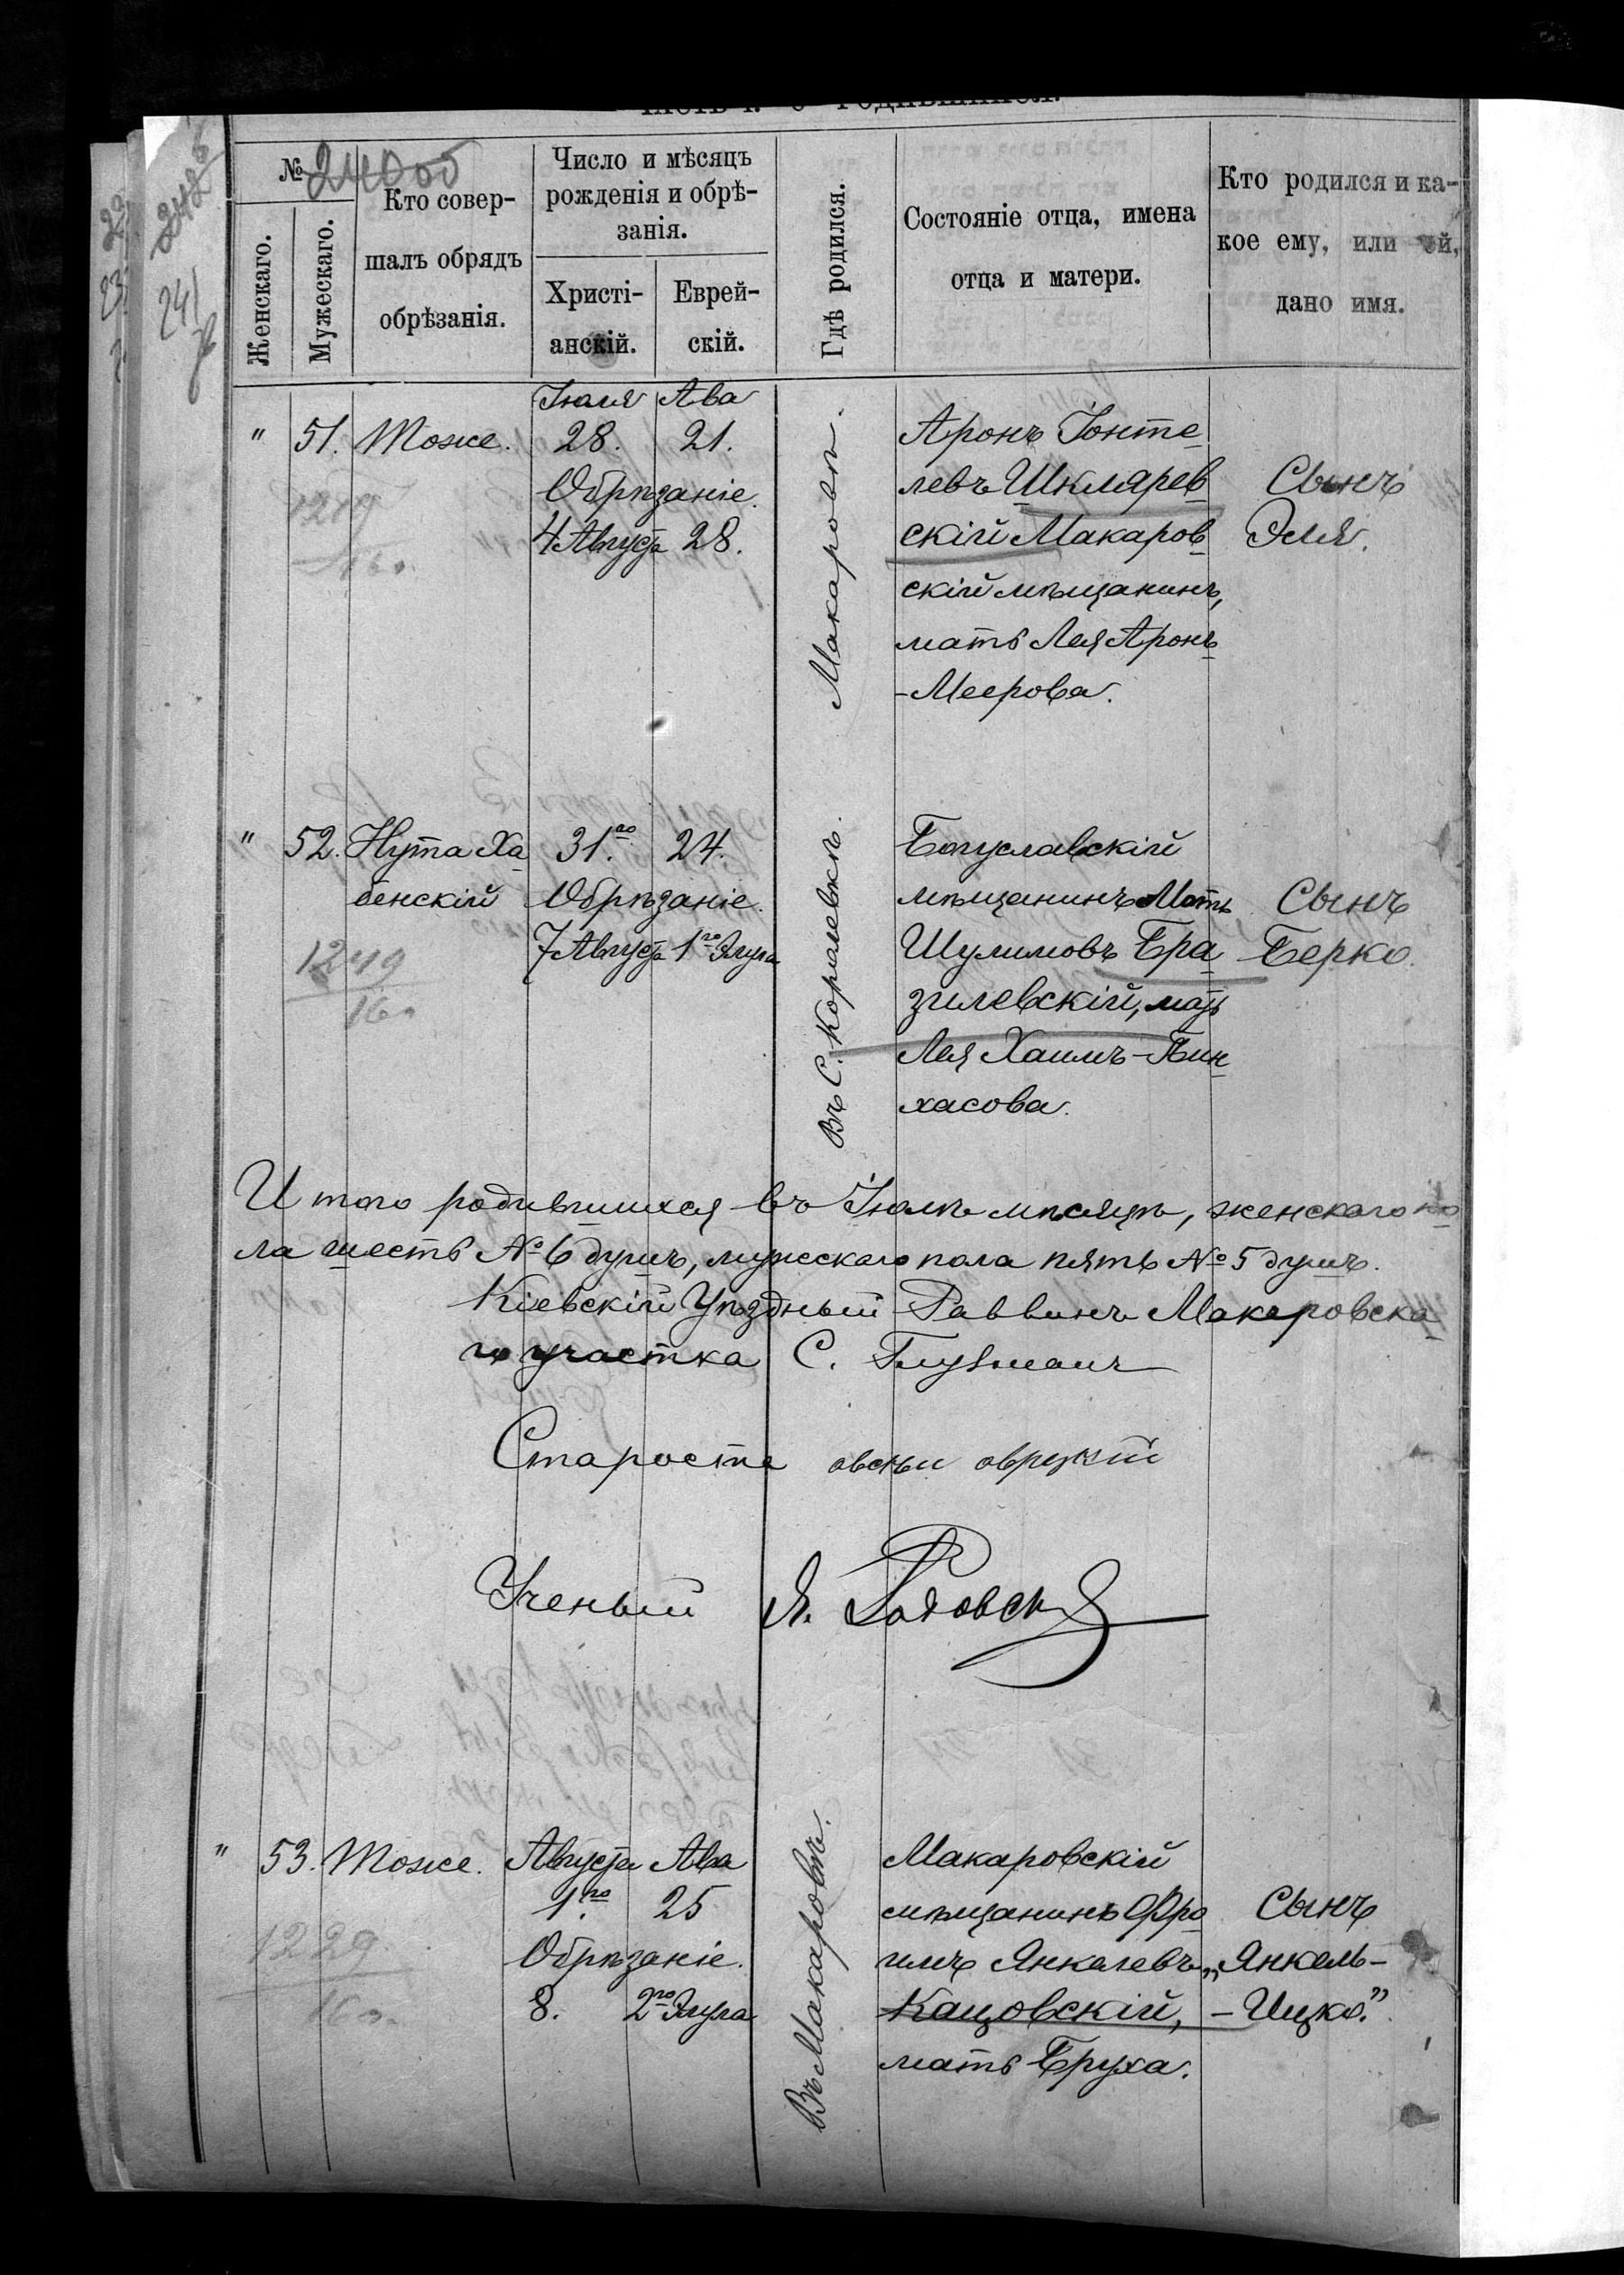 № 240 об
Женскаго.
Мужескаго.
Кто совер-
шалъ обрядъ
обрѣзанія.
Число и мѣсяцъ
рожденія и обрѣ-
занія.
Христі-
анскій.
Еврей-
скій.
Гдѣ родился.
Состояніе отца, имена
отца и матери.
Кто родился и ка-
кое ему, или ей,
дано имя.
242
241
" 51. Тоже.
Іюля Ава
28. 21.
Обрѣзаніе.
4 Августа 28.
Макаровѣ.
Аронъ Іонте
левъ Шкляров
скій Макаров
скій мѣщанинъ,
мать Лея Аронъ
-Меерова.
Сынъ
Эля.
1249
160
" 52. Нута Ха
бенскій
31го. 24.
Обрѣзаніе.
7 Августа 1го Элула
Въ С. Королевкѣ.
Богуславскій
мѣщанинъ Моть
Шулимовъ Бра
зилевскій, мать
Лея Хаимъ-Пин
хасова.
Сынъ
Берко.
1249
160
И того родившихся въ Іюлѣ мѣсяцѣ, женскаго по
ла шесть № 6 душъ, мужескаго пола пять № 5 душъ.
Кіевскій Уѣздный Раввинъ Макаровска
го участка С. Глузманъ
Староста
Ученый
" 53. Тоже.
Августа Ава
1го. 25
Обрѣзаніе.
8. 2го Элула
Въ Макаровѣ.
Макаровскій
мѣщанинъ Фро
имъ Янкелевъ
Кацовскій,
мать Бруха.
Сынъ
„Янкель-
-Ицко."
1229
160